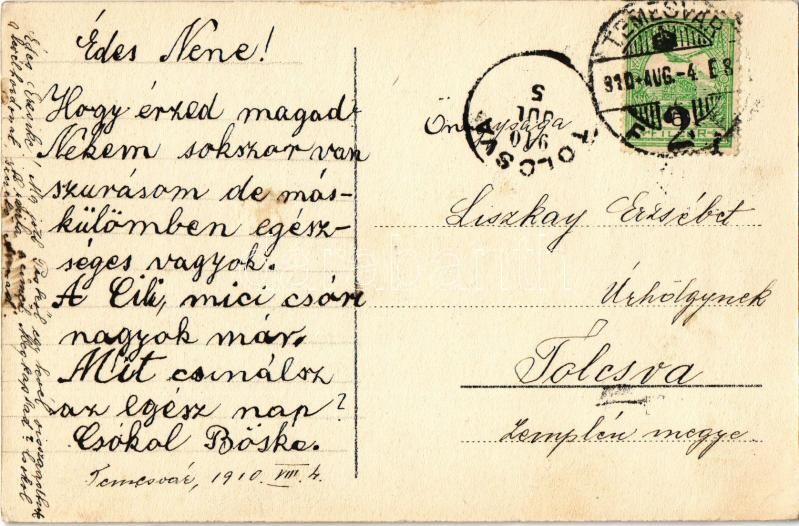 Édes Nene!
Hogy érzed magad?
Nekem sokszor van
szurásom de más-
külömben egész-
séges vagyok.
A Cili, mici csóri
nagyok már.
Mit csinálsz
az egész nap?
Csókol Böske.
Temesvár, 1910. VIII. 4.
TEMESVÁR
910 AUG. 4
2
TOLCSVA
910
5
Önagysága
Liszkay Erzsébet
Úrhölgynek
Tolcsva
Zemplén megye.